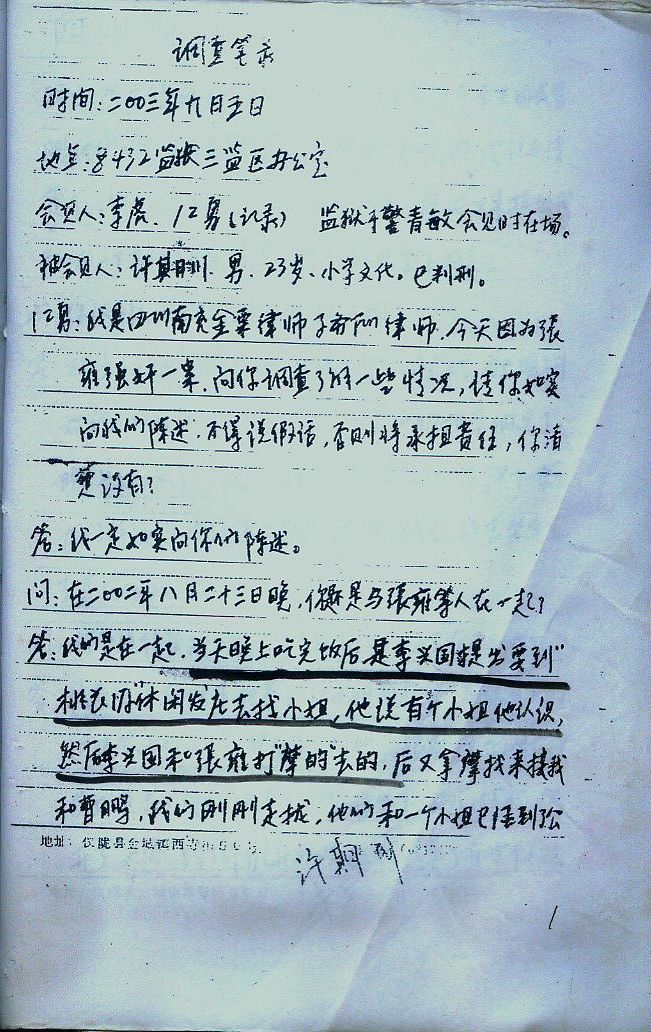 调查笔录
时间:二00三年九月五日
地点:8432监狱三监区办公室
会见人:李虎、江勇(记录) 监狱干警青敏会见时在场。
被会见人:许期川 男、23岁、小学文化。已判刑。
江勇:我是四川南充金粟律师事务所律师,今天因为张
雍强奸一案,向你调查了解一些情况,请你如实
向我们陈述,不得说假话,否则将承担责任,你清
楚没有?
答:我一定如实向你们陈述。
问:在二00二年八月二十三日晚,你是与张雍等人在一起?
答:我们是在一起,当天晚上吃完饭后,是李兴国提出要到"
桃衣阁"休闲发店去找小姐,他说有个小姐他认识,
然后李兴国和张雍打"摩的"去的,后又拿摩托来接我
和曹鹏,我们刚刚走拢,他们和一个小姐已走到公
地址:仪陇县金城镇西寺街
许期川
1